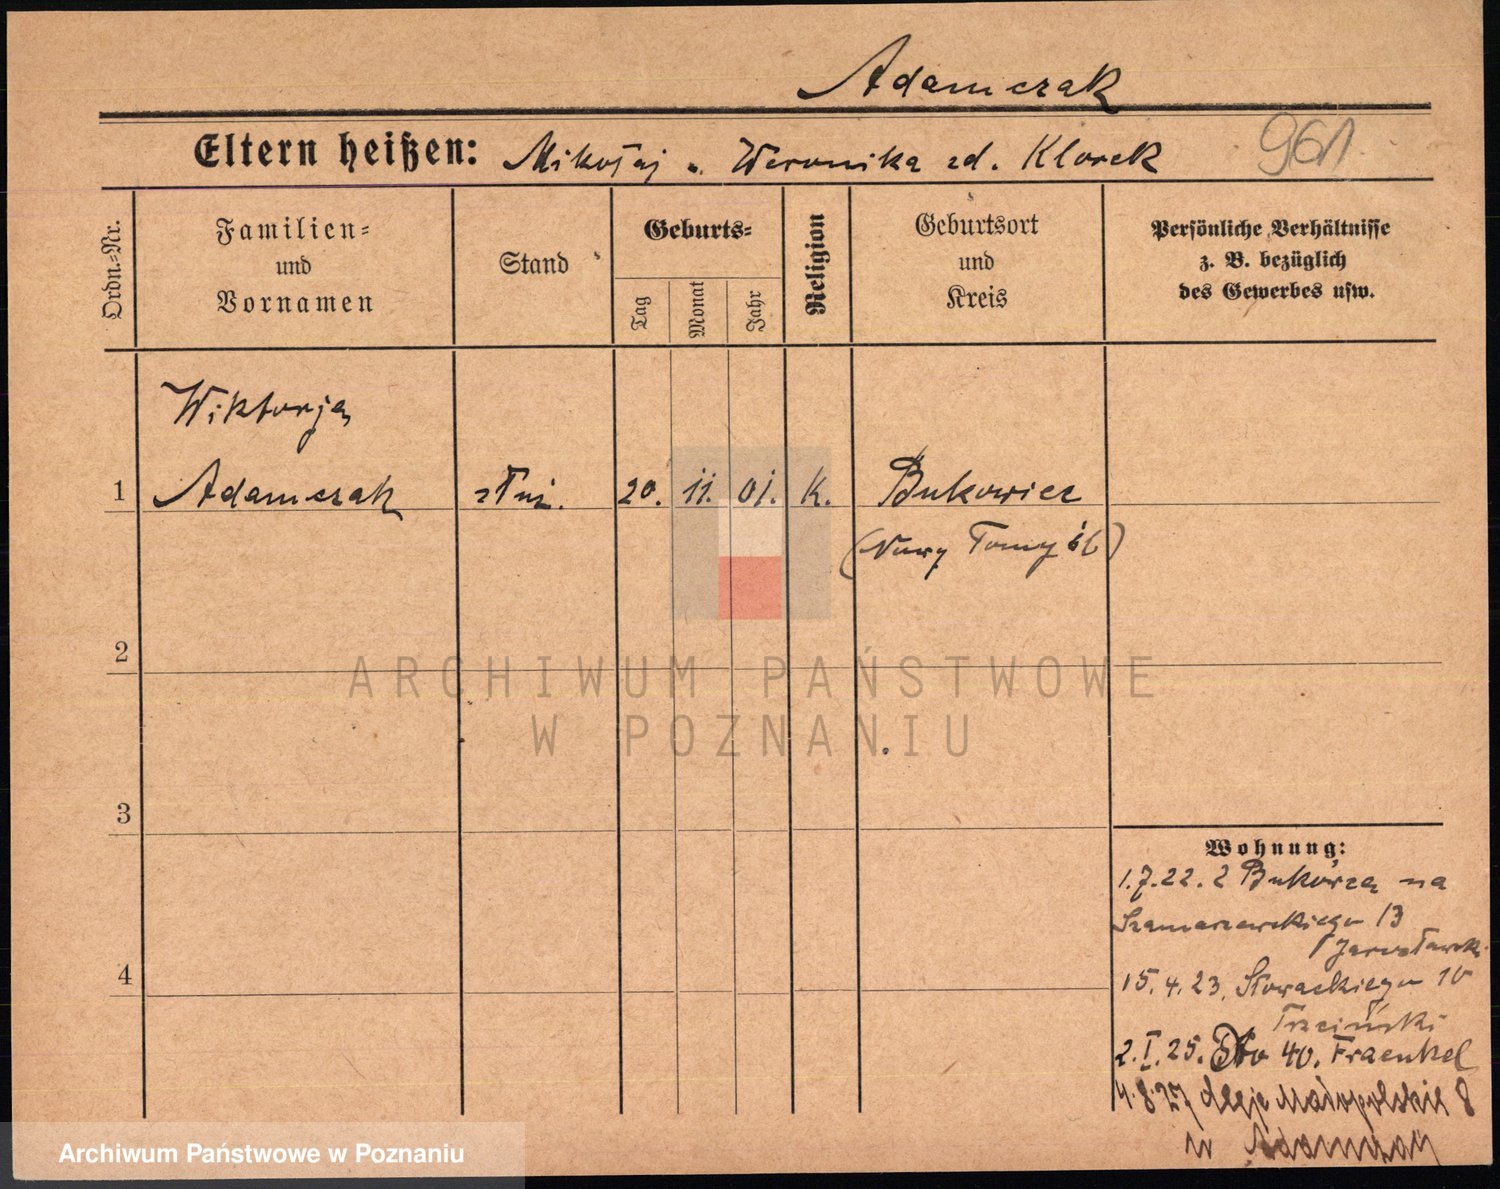 Adamczak
Eltern heißen: Mikołaj u. Weronika zd. Klorek
961
Ordn.-Nr.
Familien-
und
Vornamen
Stand
Geburts-
Tag
Monat
Jahr
Religion
Geburtsort
und
Kreis
Persönliche Verhältnisse
z. B. bezüglich
des Gewerbes usw.
Wiktorja
1 Adamczak służ. 20. 11. 01. K. Bukowiec
(Nowy Tomyśl)
2
ARCHIWUM PAŃSTWOWE
W POZNANIU
3
Wohnung:
1.7.22. z na
Szamarzewskiego 13
Jarosławski
4
15.4.23. Słowackiego 10
Trzciński
2.I.25. 40. Fraenkel
4.8.27 Aleje Małopolskie 8
Archiwum Państwowe w Poznaniu